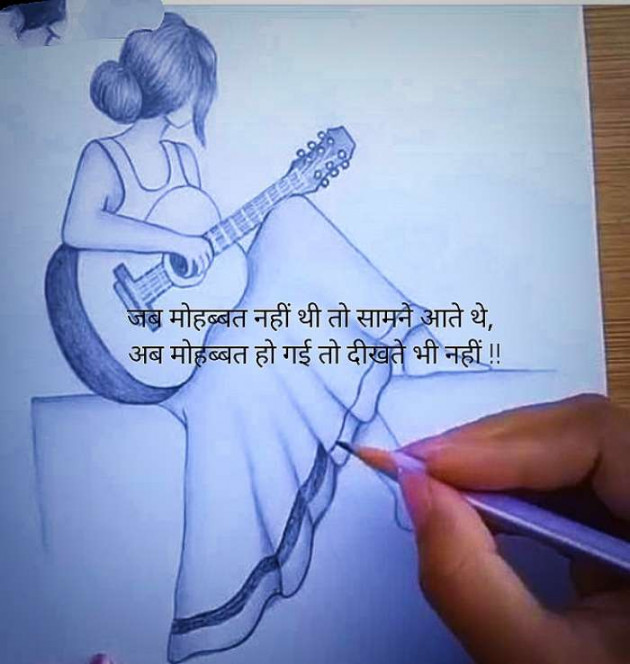 जब मोहब्बत नहीं थी तो सामने आते थे,
अब मोहब्बत हो गई तो दीखते भी नहीं !!